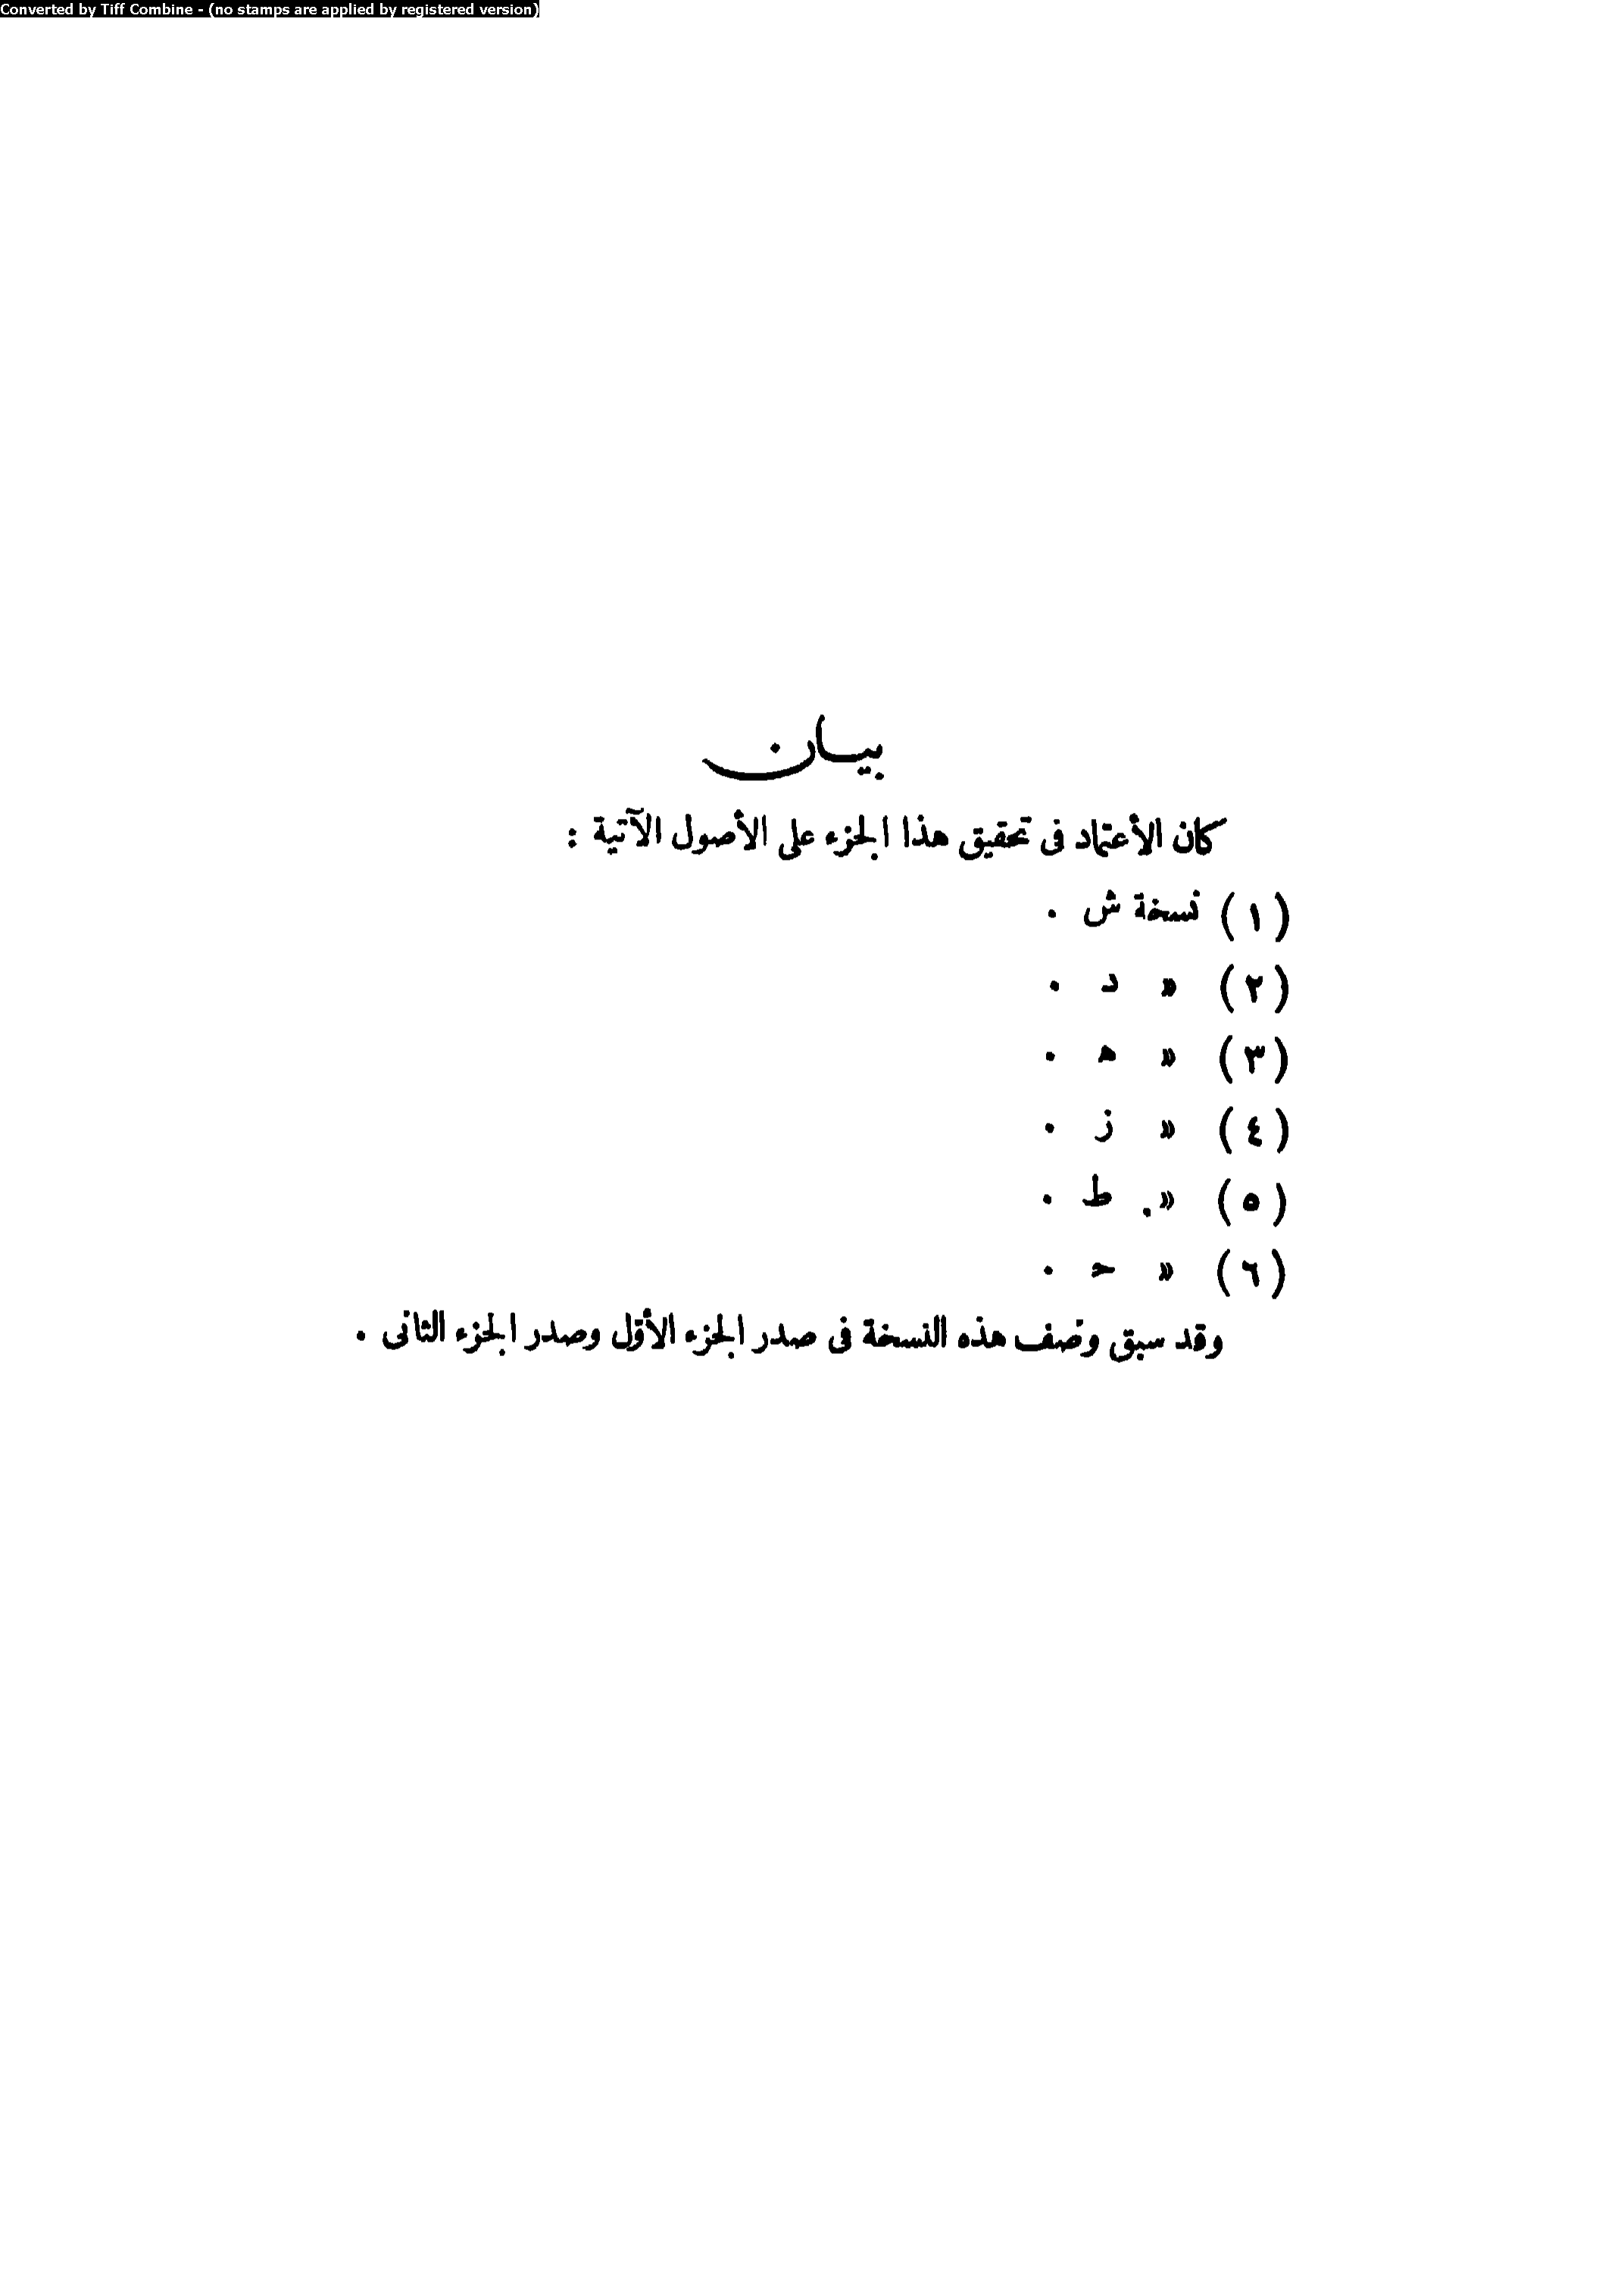 Converted by Tiff Combine - (no stamps are applied by registered version)
بيان
كان الأعتماد فى تحقيق هذا الجزء على الأصول الآتية :
(١) نسخة ش .
(٢) » د .
(٣) » ه .
(٤) » ز .
(٥) » ط .
(٦) » ح .
وقد سبق وصف هذه النسخة فى صدر الجزء الأوّل وصدر الجزء الثانى .